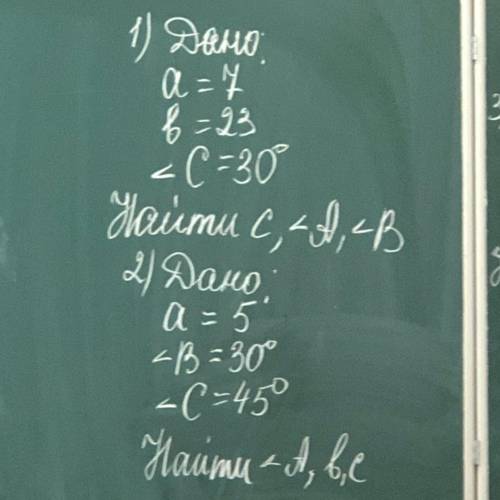 1) Дано:
a = 7
в = 23
∠C = 30°
Найти c, ∠A, ∠B
2) Дано:
a = 5
∠B = 30°
∠C = 45°
Найти ∠A, в, c